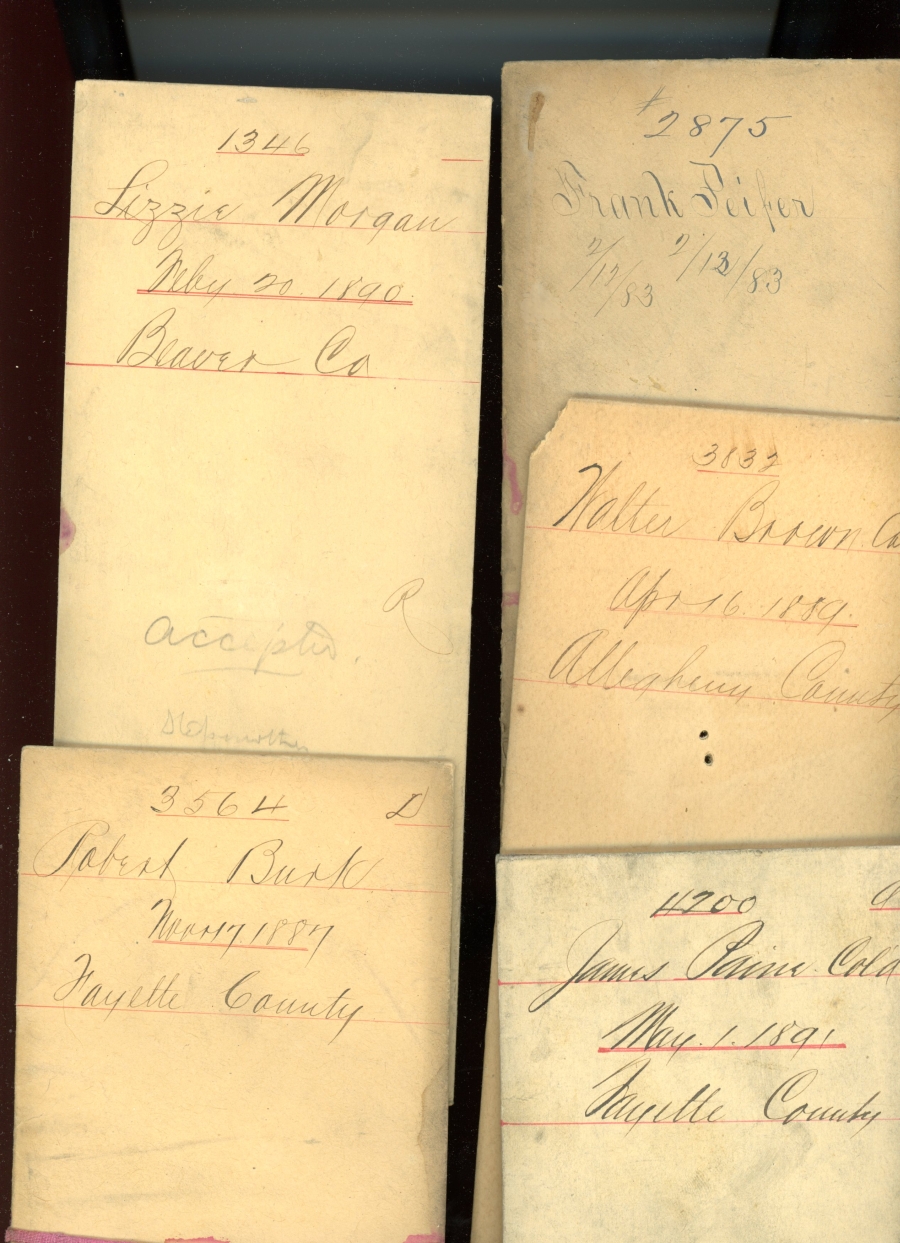 1346
Lizzie Morgan
Feby 20. 1890.
Beaver Co
R
Accepted.
3564 D
Robert Burk
Nov 17. 1887
Fayette County
#2875
Frank Feifer
2/12/83 2/13/83
3832
Walter Brown Co
Apr 16. 1889.
Allegheny County
4200
James Paine Col'd
May. 1. 1891
Fayette County